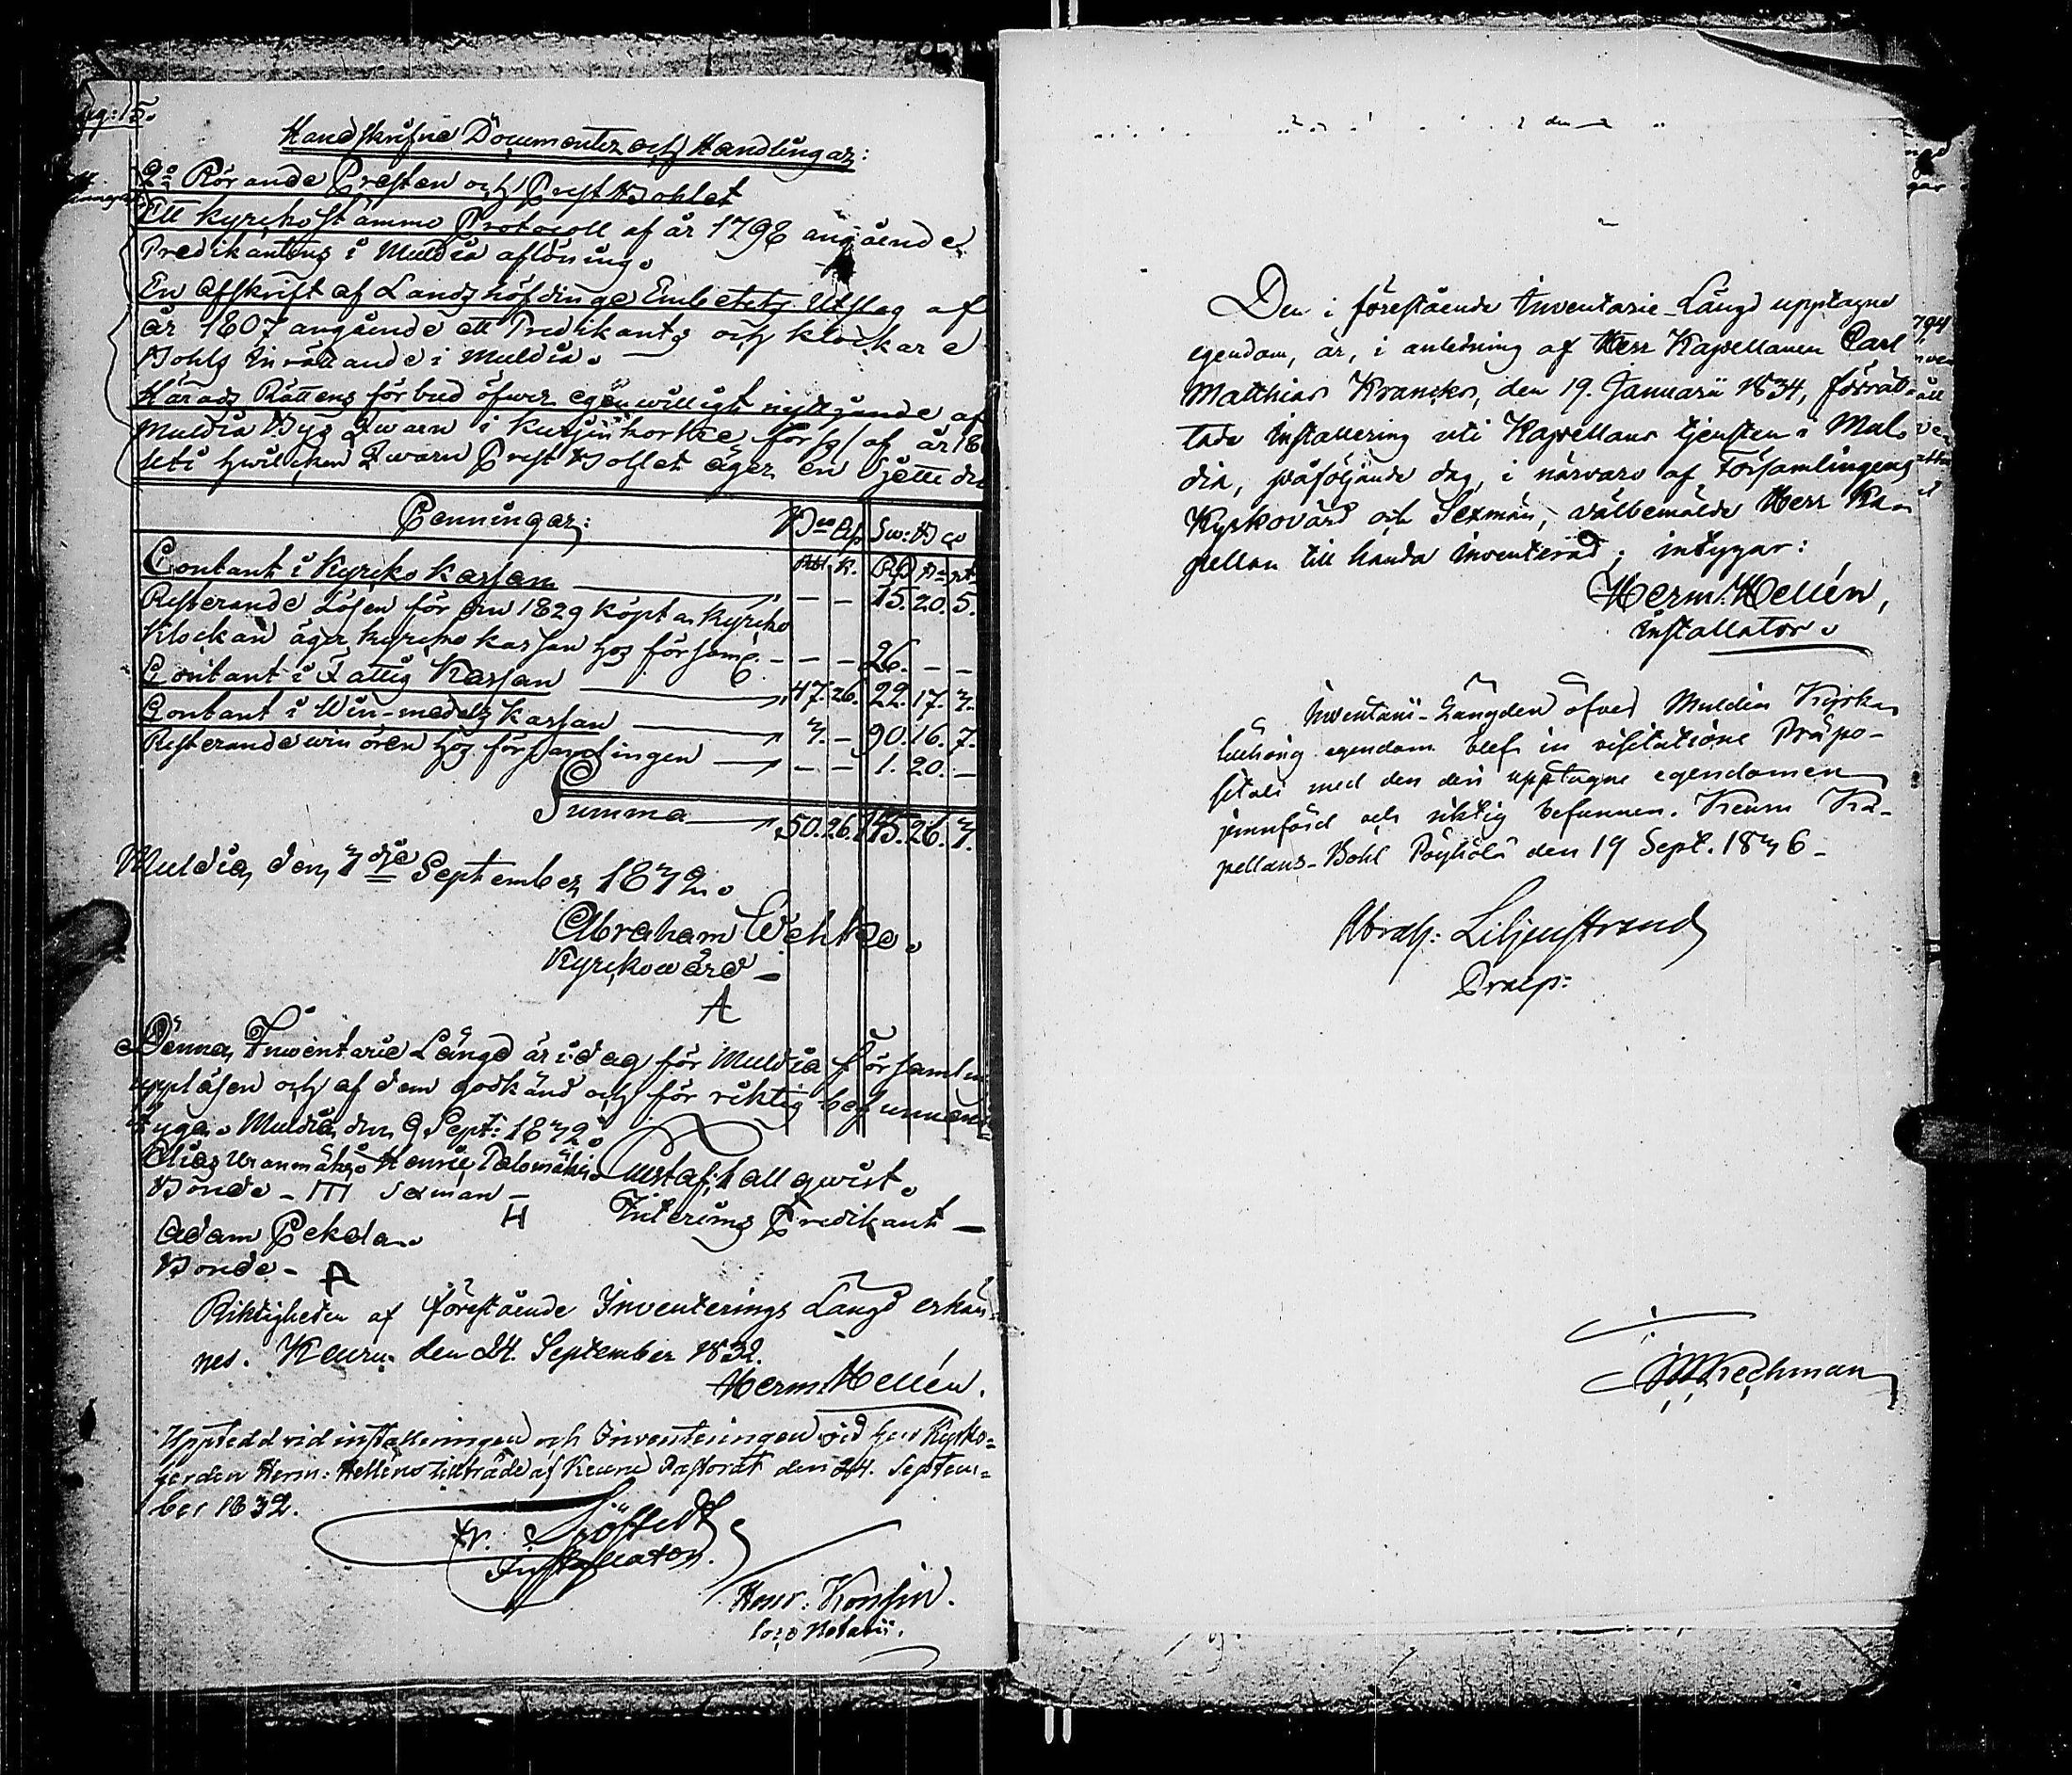 Pag: 15.
Handskrifne Documenter och Handlingar:
2:o Rörande Presten och Prest Bohlet
Ett Kyrckostämmo Protocoll af år 1798 angående
Predikantens i Muldia aflöning.
En Afskrift af Landshöfdinge Embetets Utslag af
år 1807 angående ett Predikants och Klockare
Bohls Inrättande i Muldia.
Härads Rättens förbud öfwer egenwilligt nyttjande af
Muldia Bys Qwarn i
uti hwilcken Qwarn Prest Bohlet äger en Sjette del
Penningar:
B:co Ass Sw: B:co
Rbl K. RD s. rst
Contant i Kyrcko Kassan — — 15. 20. 5.
Resterande Lösen för den 1829 köpta Kyrcko
Klockan äger Kyrcko Kassan hos församl. — — 26. — —
Contant i Fattig Kassan 47. 26. 22. 17. 3.
Contant i Win-medels Kassan 3. — 90. 16. 7.
Resterande win ören hos församlingen — — 1. 20. —
Summa 50. 26. 155. 26. 3.
Muldia den 7de September 1832.
Abraham Wehko.
Kyrckowärd —
A
Denna Inventarie Längd är i dag för Muldia Församling
uppläsen och af dem godkänd och för riktig befunnen
Muldia den 9 Sept: 1832.
Elias Uranmäki Henric Palomäki Gustaf Hallqwist.
Bonde — III Sexman — H Interims Predikant —
Adam Pekola.
Bonde — A
Riktigheten af förestående Inventerings Längd erkän-
nes. Keuru den 24. September 1832.
Herm. Hellén.
Upptedd vid installeringen och Inventeringen vid herr Kyrko-
herden Herm: Helléns tillträde af Keuru Pastorat den 24. Septem-
ber 1832.
Fr. Sjöstedt
Installator.
Henr. Konsin.
loco Notarii.
Den i förestående Inventarie-Längd upptagne
egendom, är, i anledning af Herr Kapellanen Carl
Matthias Krancks, den 19. Januarii 1834, förrät-
tade installering uti Kapellans tjensten i Mul-
dia, påföljande dag, i närvaro af Församlingens
Kyrkovärd och Sexmän, välbemälde Herr Ka-
pellan till handa inventerad; intygar:
Herm. Hellén,
installator.
Inventarii-Längden öfver Muldia Kyrka
tillhörig egendom blef in visitatione Präpo-
sitali med den deri upptagne egendomen
jemnförd och riktig befunnen. Keuru Ka-
pellans-Bohl Pöyhölä den 19 Sept. 1836 —
Abrah: Liljenstrand
Praep: